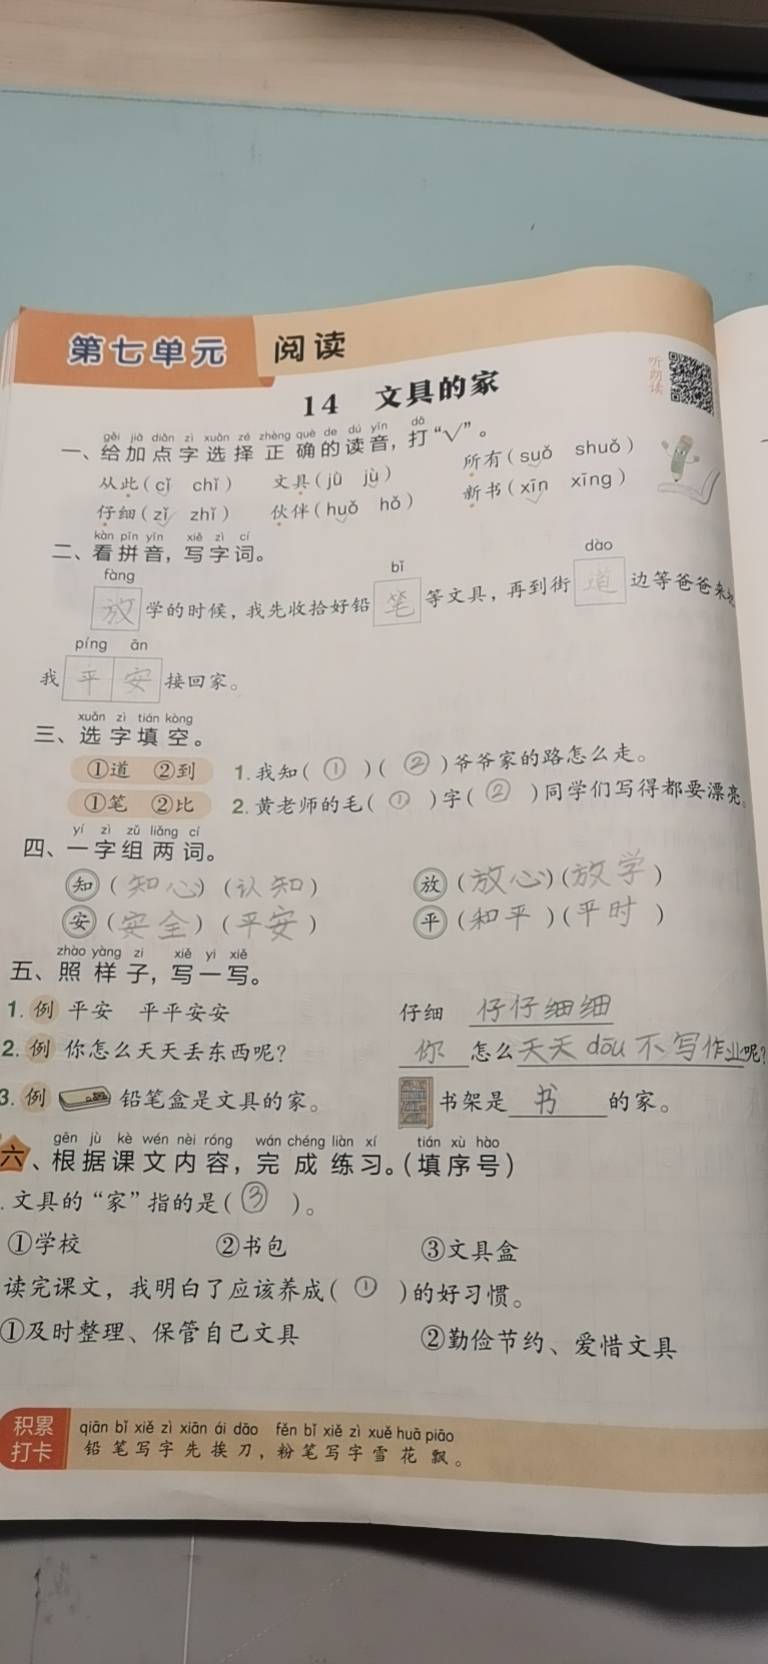 第七单元 阅读
听朗读
14 文具的家
gěi jiā diǎn zì xuǎn zé zhèng què de dú yīn dǎ
一、给加点字选择正确的读音，打“√”。
从此(cǐ chǐ) 文具(jǜ jù) 所有(suǒ shuǒ)
仔细(zǐ zhǐ) 伙伴(huǒ hǒ) 新书(xīn xīng)
kàn pīn yīn xiě zì cí
二、看拼音，写字词。
fàng bǐ dào
放学的时候，我先收拾好铅笔等文具，再到街道边等爸爸来
píng ān
我平安接回家。
xuǎn zì tián kòng
三、选字填空。
①道 ②到 1.我知(①)(②)爷爷家的路怎么走。
①笔 ②比 2.黄老师的毛(①)字(②)同学们写得都要漂亮。
yí zì zǔ liǎng cí
四、一字组两词。
知(知心)(认知) 放(放心)(放学)
安(安全)(平安) 平(和平)(平时)
zhào yàng zi xiě yi xiě
五、照样子，写一写。
1.例 平安 平平安安 仔细 仔仔细细
2.例 你怎么天天丢东西呢？ 你怎么天天dōu不写作业呢？
3.例 铅笔盒是文具的家。 书架是书的家。
gēn jù kè wén nèi róng wán chéng liàn xí tián xù hào
六、根据课文内容，完成练习。(填序号)
.文具的“家”指的是(③)。
①学校 ②书包 ③文具盒
读完课文，我明白了应该养成(①)的好习惯。
①及时整理、保管自己文具 ②勤俭节约、爱惜文具
积累打卡
qiān bǐ xiě zì xiān ái dāo fěn bǐ xiě zì xuě huā piāo
铅笔写字先挨刀，粉笔写字雪花飘。